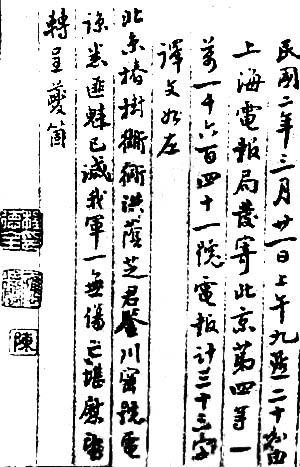 民國二年三月廿一日上午九點二十分由
上海電報局發寄北京第四等一
萬一千六百四十一號電報計三十三字
譯文如左
北京椿樹衚衕洪蔭芝君鑒川密號電
諒悉匪魁已滅我軍一無傷亡堪慰望
轉呈夔笛
陳